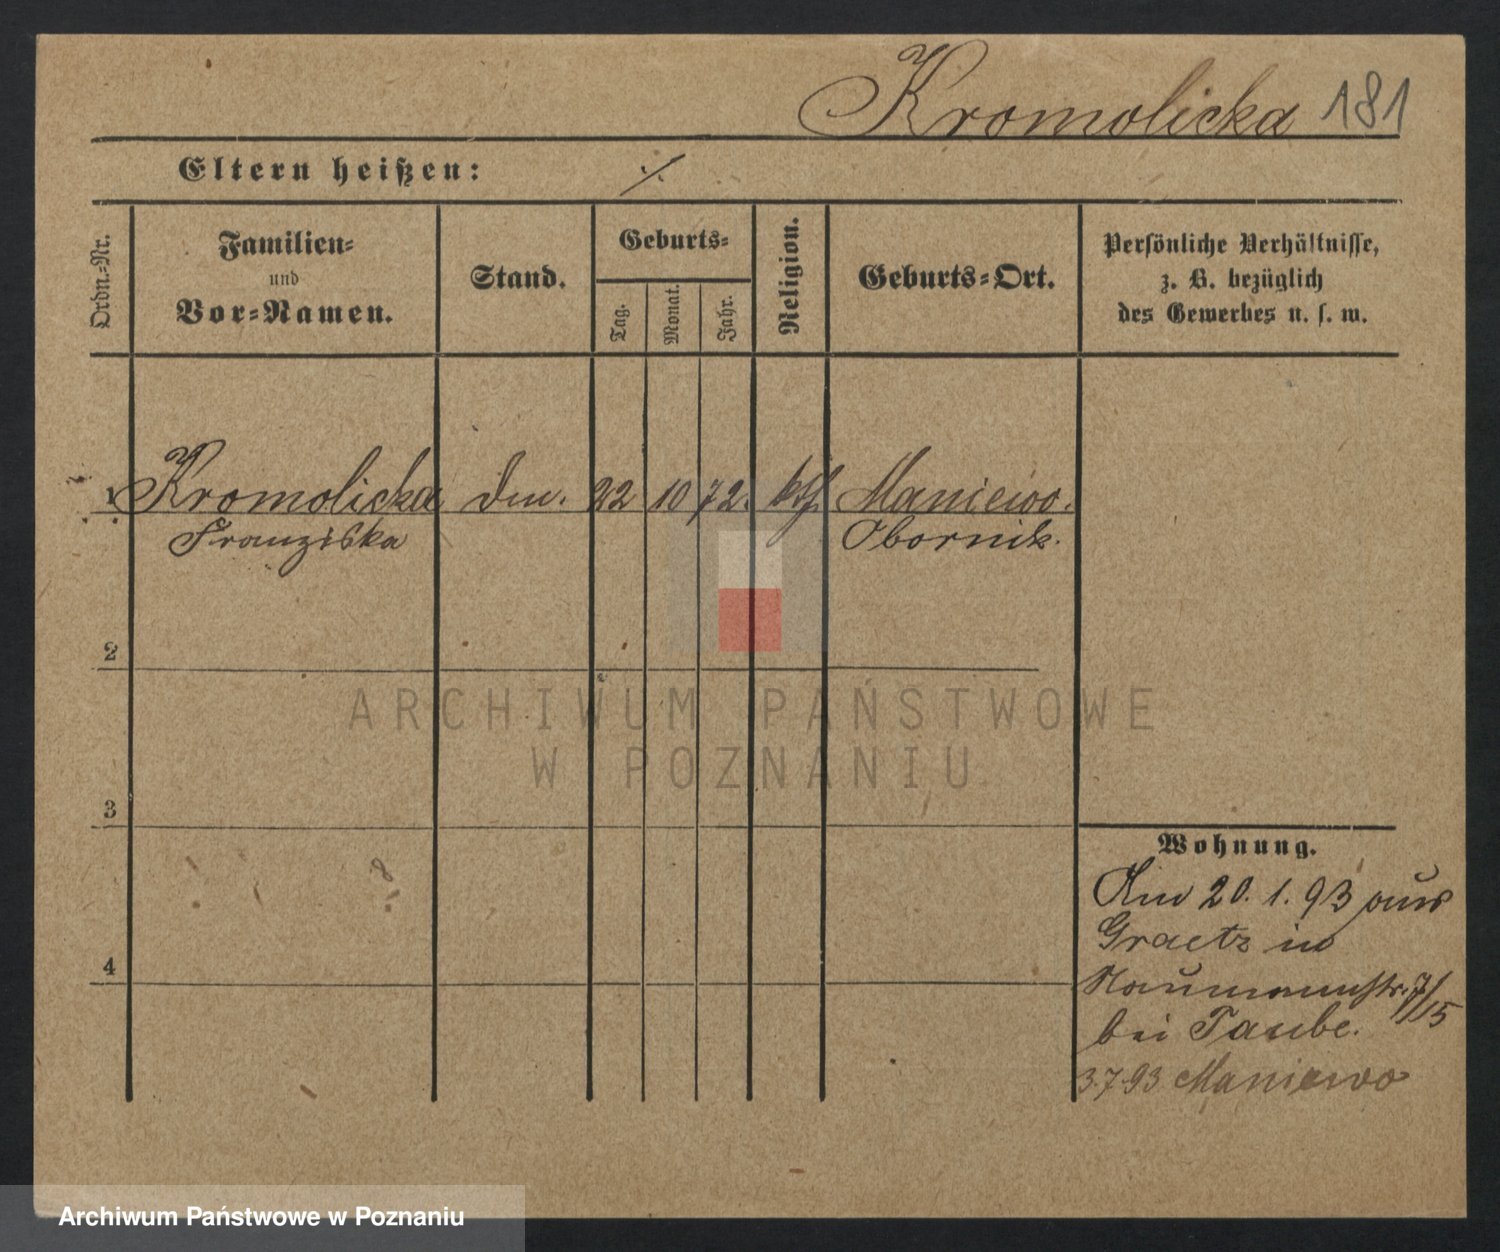 Kromolicka 181
Eltern heißen: ·/.
Ordn.=Nr.
Familien=
und
Vor=Namen.
Stand.
Geburts=
Tag.
Monat.
Jahr.
Religion.
Geburts=Ort.
Persönliche Verhältnisse,
z. B. bezüglich
des Gewerbes u. s. w.
1 Kromolicka 22 10 72. kth. Maniewo.
Franziska Obornik.
2
ARCHIWUM PAŃSTWOWE
W POZNANIU
3
Wohnung.
Am 20. 1. 93 aus
Graetz in
4
Naumannstr. 7/15
bei Taube.
3.7.93 Maniewo
Archiwum Państwowe w Poznaniu